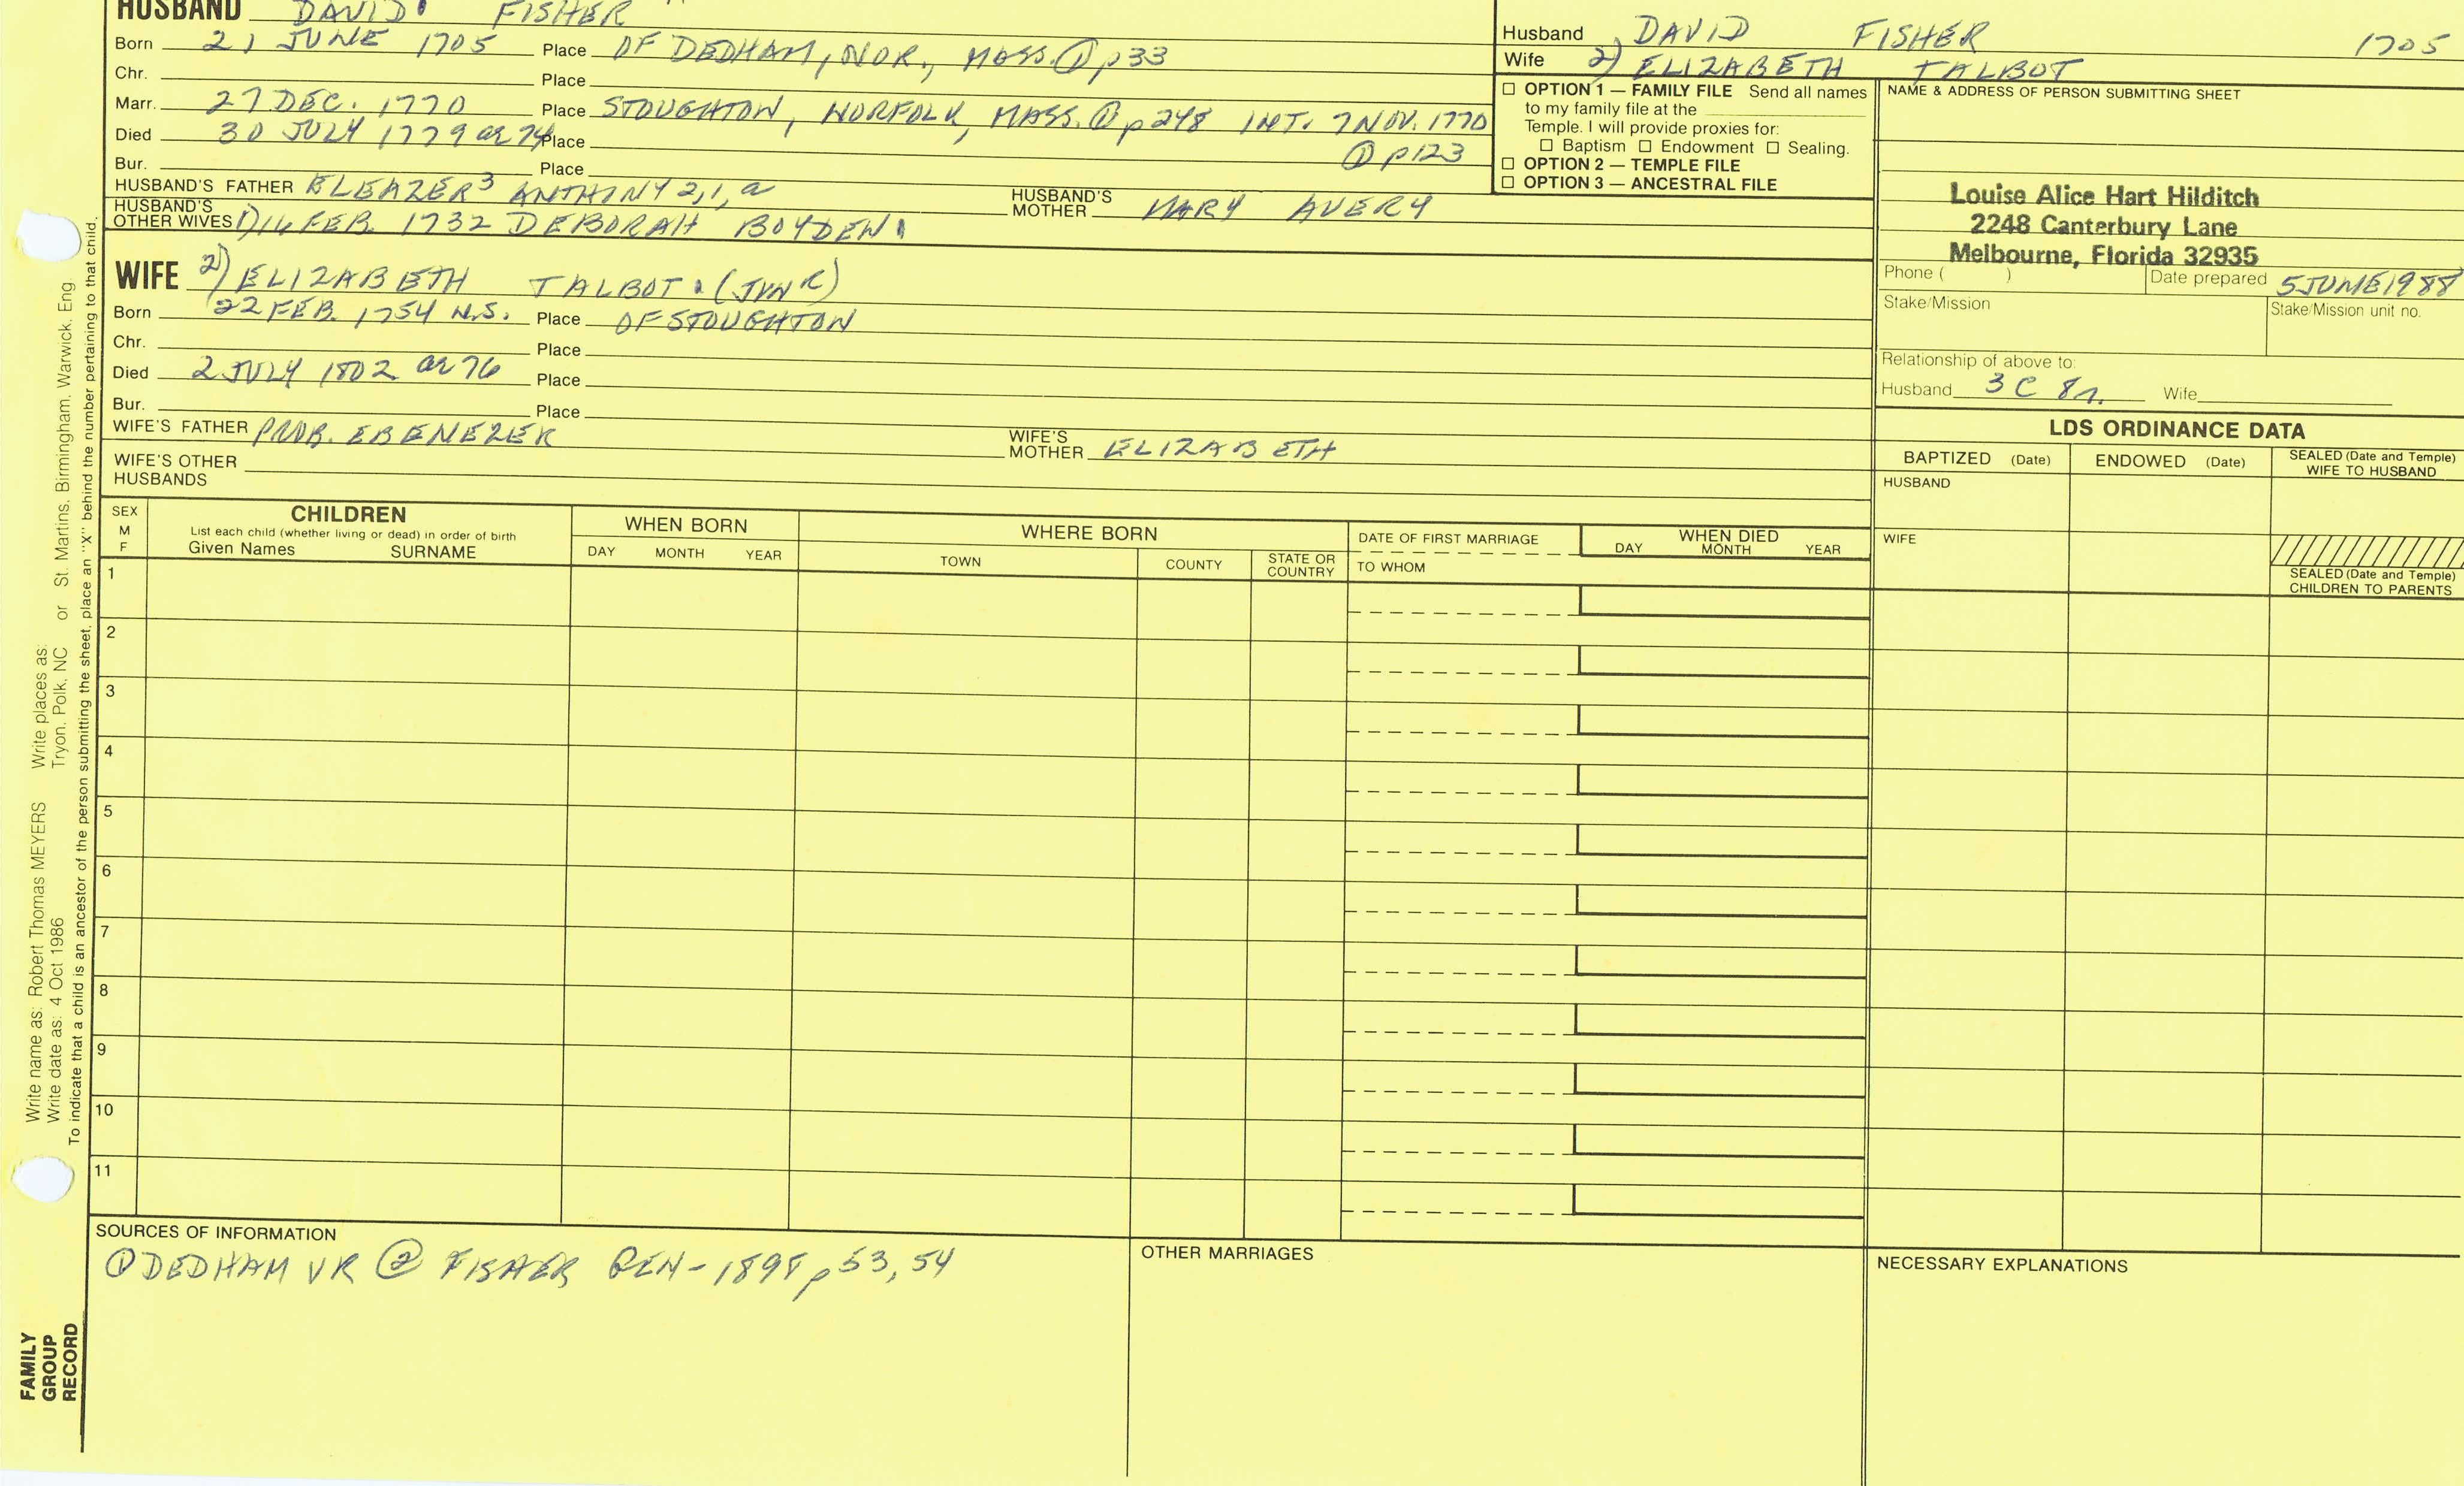 HUSBAND DAVID FISHER
Born 21 JUNE 1705 Place OF DEDHAM, NOR., MASS. ① p33
Chr. Place
Marr. 27 DEC. 1770 Place STOUGHTON, NORFOLK, MASS. ② p248 INT. 7 NOV. 1770
① p123
Died 30 JULY 1779 ae 74 Place
Bur. Place
HUSBAND'S FATHER ELEAZER³ ANTHINY 2,1,a HUSBAND'S MOTHER MARY AVERY
HUSBAND'S OTHER WIVES 1) 16 FEB. 1732 DEBORAH BOYDEN
WIFE 2) ELIZABETH TALBOT (JUNR)
Born 22 FEB. 1754 N.S. Place OF STOUGHTON
Chr. Place
Died 2 JULY 1802 ae 76 Place
Bur. Place
WIFE'S FATHER PROB. EBENEZER WIFE'S MOTHER ELIZABETH
WIFE'S OTHER HUSBANDS
Husband DAVID FISHER 1705
Wife 2) ELIZABETH TALBOT
☐ OPTION 1 — FAMILY FILE Send all names
to my family file at the
Temple. I will provide proxies for:
☐ Baptism ☐ Endowment ☐ Sealing.
☐ OPTION 2 — TEMPLE FILE
☐ OPTION 3 — ANCESTRAL FILE
NAME & ADDRESS OF PERSON SUBMITTING SHEET
Louise Alice Hart Hilditch
2248 Canterbury Lane
Melbourne, Florida 32935
Phone ( ) Date prepared 5 JUNE 1988
Stake/Mission Stake/Mission unit no.
Relationship of above to:
Husband 3C 8r. Wife
LDS ORDINANCE DATA
BAPTIZED (Date) ENDOWED (Date) SEALED (Date and Temple) WIFE TO HUSBAND
HUSBAND
WIFE
SEALED (Date and Temple) CHILDREN TO PARENTS
SEX M F
CHILDREN
List each child (whether living or dead) in order of birth
Given Names SURNAME
WHEN BORN
DAY MONTH YEAR
WHERE BORN
TOWN COUNTY STATE OR COUNTRY
DATE OF FIRST MARRIAGE
TO WHOM
WHEN DIED
DAY MONTH YEAR
1
2
3
4
5
6
7
8
9
10
11
SOURCES OF INFORMATION
① DEDHAM VR ② FISHER GEN - 1898 p 53, 54
OTHER MARRIAGES
NECESSARY EXPLANATIONS
Write name as: Robert Thomas MEYERS Write places as:
Write date as: 4 Oct 1986 Tryon, Polk, NC or St. Martins, Birmingham, Warwick, Eng.
To indicate that a child is an ancestor of the person submitting the sheet, place an "X" behind the number pertaining to that child.
FAMILY
GROUP
RECORD